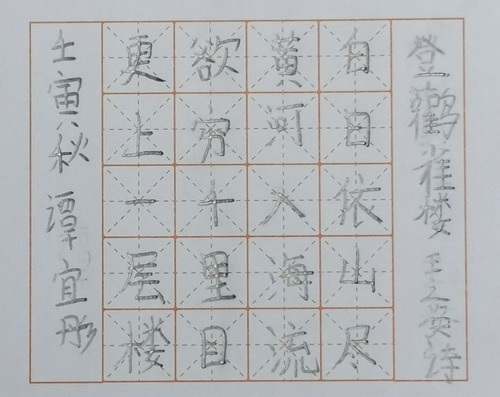 登鹳雀楼 王之涣诗
白日依山尽
黄河入海流
欲穷千里目
更上一层楼
壬寅秋 谭宜彤